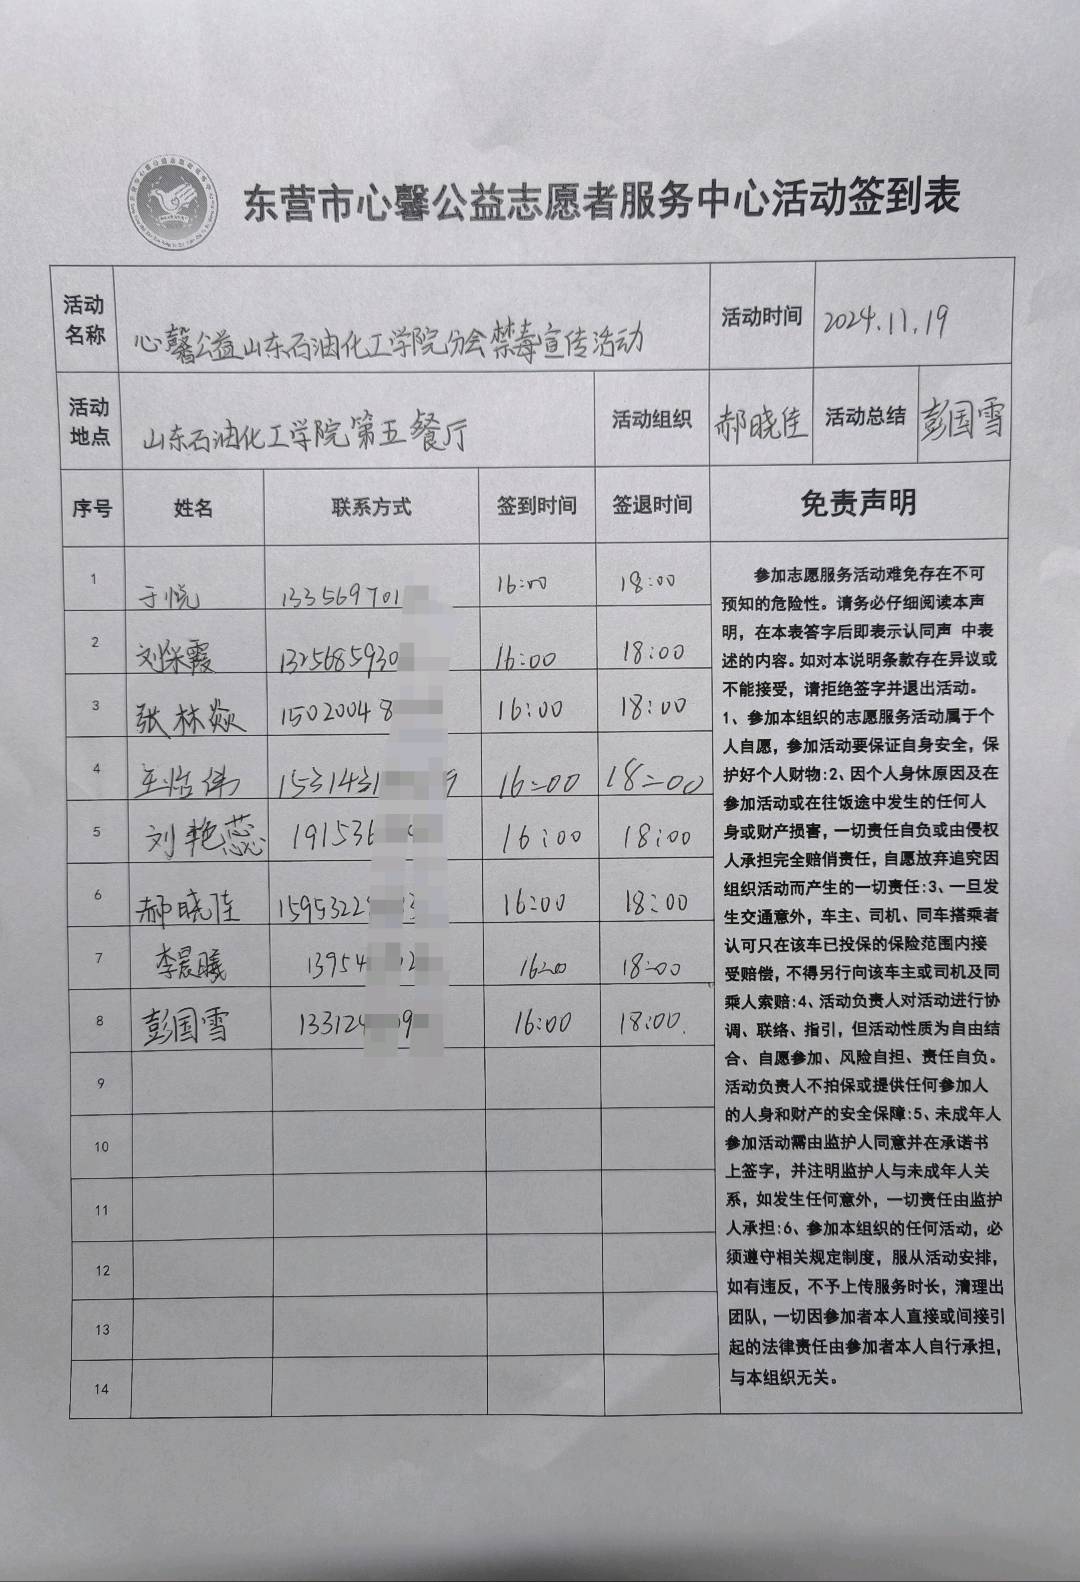 东营市心馨公益志愿者服务中心活动签到表
活动名称 心馨公益山东石油化工学院分会禁毒宣传活动 活动时间 2024.11.19
活动地点 山东石油化工学院第五餐厅 活动组织 郝晓佳 活动总结 彭国雪
序号 姓名 联系方式 签到时间 签退时间 免责声明
1 于悦 133569701 16:00 18:00
2 刘采霞 1325685930 16:00 18:00
3 张林焱 15020048 16:00 18:00
4 王恬伟 1531431 9 16:00 18:00
5 刘艳蕊 191536 16:00 18:00
6 郝晓佳 1595322 3 16:00 18:00
7 李晨曦 13954 2 16:00 18:00
8 彭国雪 133124 09 16:00 18:00.
9
10
11
12
13
14
参加志愿服务活动难免存在不可
预知的危险性。请务必仔细阅读本声
明，在本表答字后即表示认同声 中表
述的内容。如对本说明条款存在异议或
不能接受，请拒绝签字并退出活动。
1、参加本组织的志愿服务活动属于个
人自愿，参加活动要保证自身安全，保
护好个人财物:2、因个人身休原因及在
参加活动或在往饭途中发生的任何人
身或财产损害，一切责任自负或由侵权
人承担完全赔俏责任，自愿放弃追究因
组织活动而产生的一切责任:3、一旦发
生交通意外，车主、司机、同车搭乘者
认可只在该车已投保的保险范围内接
受赔偿，不得另行向该车主或司机及同
乘人索赔:4、活动负责人对活动进行协
调、联络、指引，但活动性质为自由结
合、自愿参加、风险自担、责任自负。
活动负责人不拍保或提供任何参加人
的人身和财产的安全保障:5、未成年人
参加活动需由监护人同意并在承诺书
上签字，并注明监护人与未成年人关
系，如发生任何意外，一切责任由监护
人承担:6、参加本组织的任何活动，必
须遵守相关规定制度，服从活动安排，
如有违反，不予上传服务时长，清理出
团队，一切因参加者本人直接或间接引
起的法律责任由参加者本人自行承担，
与本组织无关。